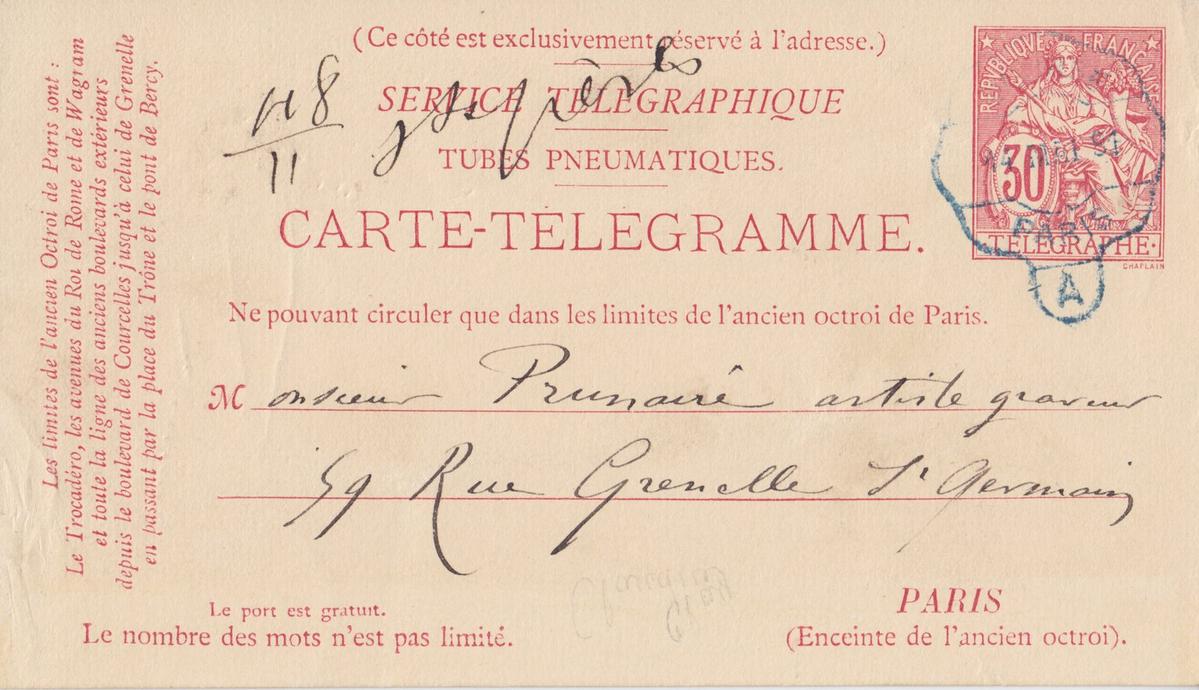 (Ce côté est exclusivement réservé à l'adresse.)
SERVICE TÉLÉGRAPHIQUE
TUBES PNEUMATIQUES.
CARTE-TÉLÉGRAMME.
Ne pouvant circuler que dans les limites de l'ancien octroi de Paris.
Monsieur Prunaire artiste graveur
59 Rue Grenelle St Germain
PARIS
(Enceinte de l'ancien octroi).
Le port est gratuit.
Le nombre des mots n'est pas limité.
Les limites de l'ancien Octroi de Paris sont :
Le Trocadéro, les avenues du Roi de Rome et de Wagram
et toute la ligne des anciens boulevards extérieurs
depuis le boulevard de Courcelles jusqu'à celui de Grenelle
en passant par la place du Trône et le pont de Bercy.
REPVBLIQVE FRANÇAISE
30
TELEGRAPHE
CHAPLAIN
PARIS
A
118
11